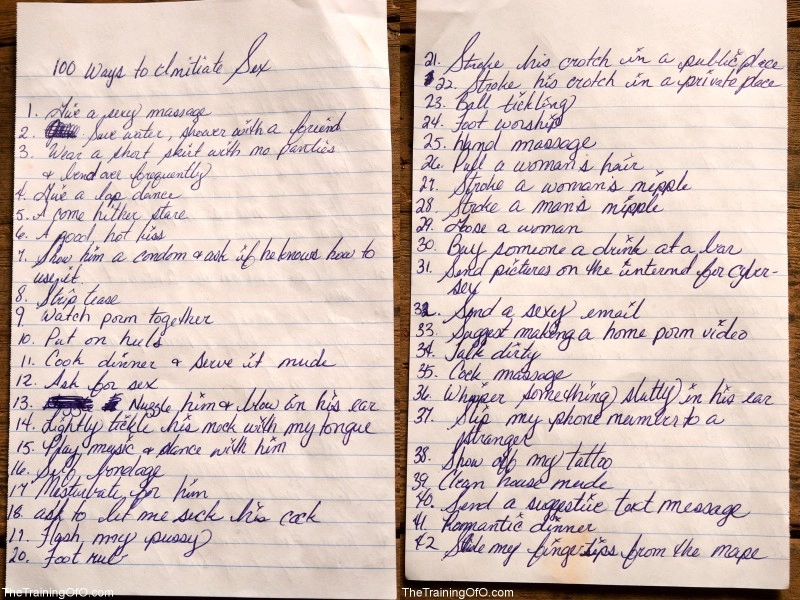 100 Ways to Initiate Sex
1. Give a sexy massage
2. Save water, shower with a friend
3. Wear a short skirt with no panties
& bend over frequently
4. Give a lap dance
5. A come hither stare
6. A good, hot kiss
7. Show him a condom & ask if he knows how to
use it.
8. Strip tease
9. Watch porn together
10. Put on heels
11. Cook dinner & serve it nude
12. Ask for sex
13. Nuzzle him & blow in his ear
14. Lightly tickle his neck with my tongue
15. Play music & dance with him
16. Self bondage
17. Masturbate for him
18. ask to let me suck his cock
19. Flash my pussy
20. Foot rub
TheTrainingOfO.com
21. Stroke his crotch in a public place
22. Stroke his crotch in a private place
23. Ball tickling
24. Foot worship
25. hand massage
26. Pull a woman's hair
27. Stroke a woman's nipple
28. Stroke a man's nipple
29. a woman
30. Buy someone a drink at a bar
31. Send pictures on the internet for cyber-
sex
32. Send a sexy email
33. Suggest making a home porn video
34. Talk dirty
35. Cock massage
36. Whisper something slutty in his ear
37. Slip my phone number to a
stranger
38. Show off my tattoo
39. Clean house nude
40. Send a suggestive text message
41. Romantic dinner
42. Slide my fingertips from the nape
TheTrainingOfO.com